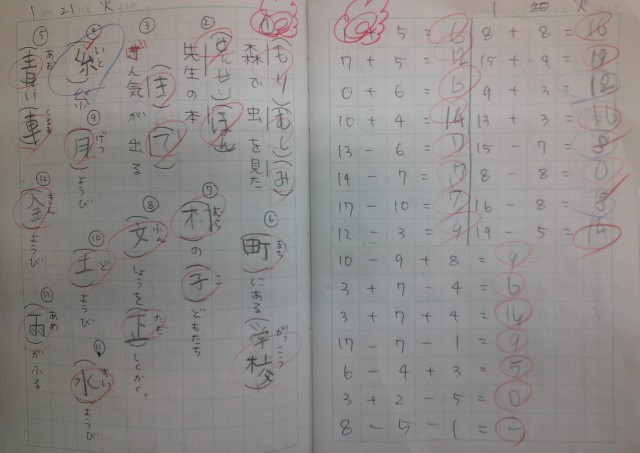 1 21 火
① 森(もり)で虫(むし)を見(み)た
② 先生(せんせい)の本(ほん)
③ げん気(き)が出(で)る
④ 糸(いと)
⑤ 青(あお)い車(くるま)
⑥ 町(まち)にある学校(がっこう)
⑦ 村(むら)の子(こ)どもたち
⑧ 文(ぶん)しょうを正(ただ)しくかく。
⑨ 月(げつ)ようび
⑩ 土(ど)ようび
⑪ 水(すい)ようび
⑫ 金(きん)ようび
⑬ 雨(あめ)がふる
1 20 火
+ 5 = 6
7 + 5 = 12
0 + 6 = 6
10 + 4 = 14
13 - 6 = 7
14 - 7 = 7
17 - 10 = 7
12 - 3 = 9
10 - 9 + 8 = 9
3 + 7 - 4 = 6
3 + 7 + 4 = 14
17 - 7 - 1 = 9
6 - 4 + 3 = 5
3 + 2 - 5 = 0
8 - 5 - 1 = 2
8 + 8 = 16
15 + 4 = 19
9 + 3 = 12
13 + 3 = 16
15 - 7 = 8
8 - 8 = 0
16 - 8 = 8
19 - 5 = 14